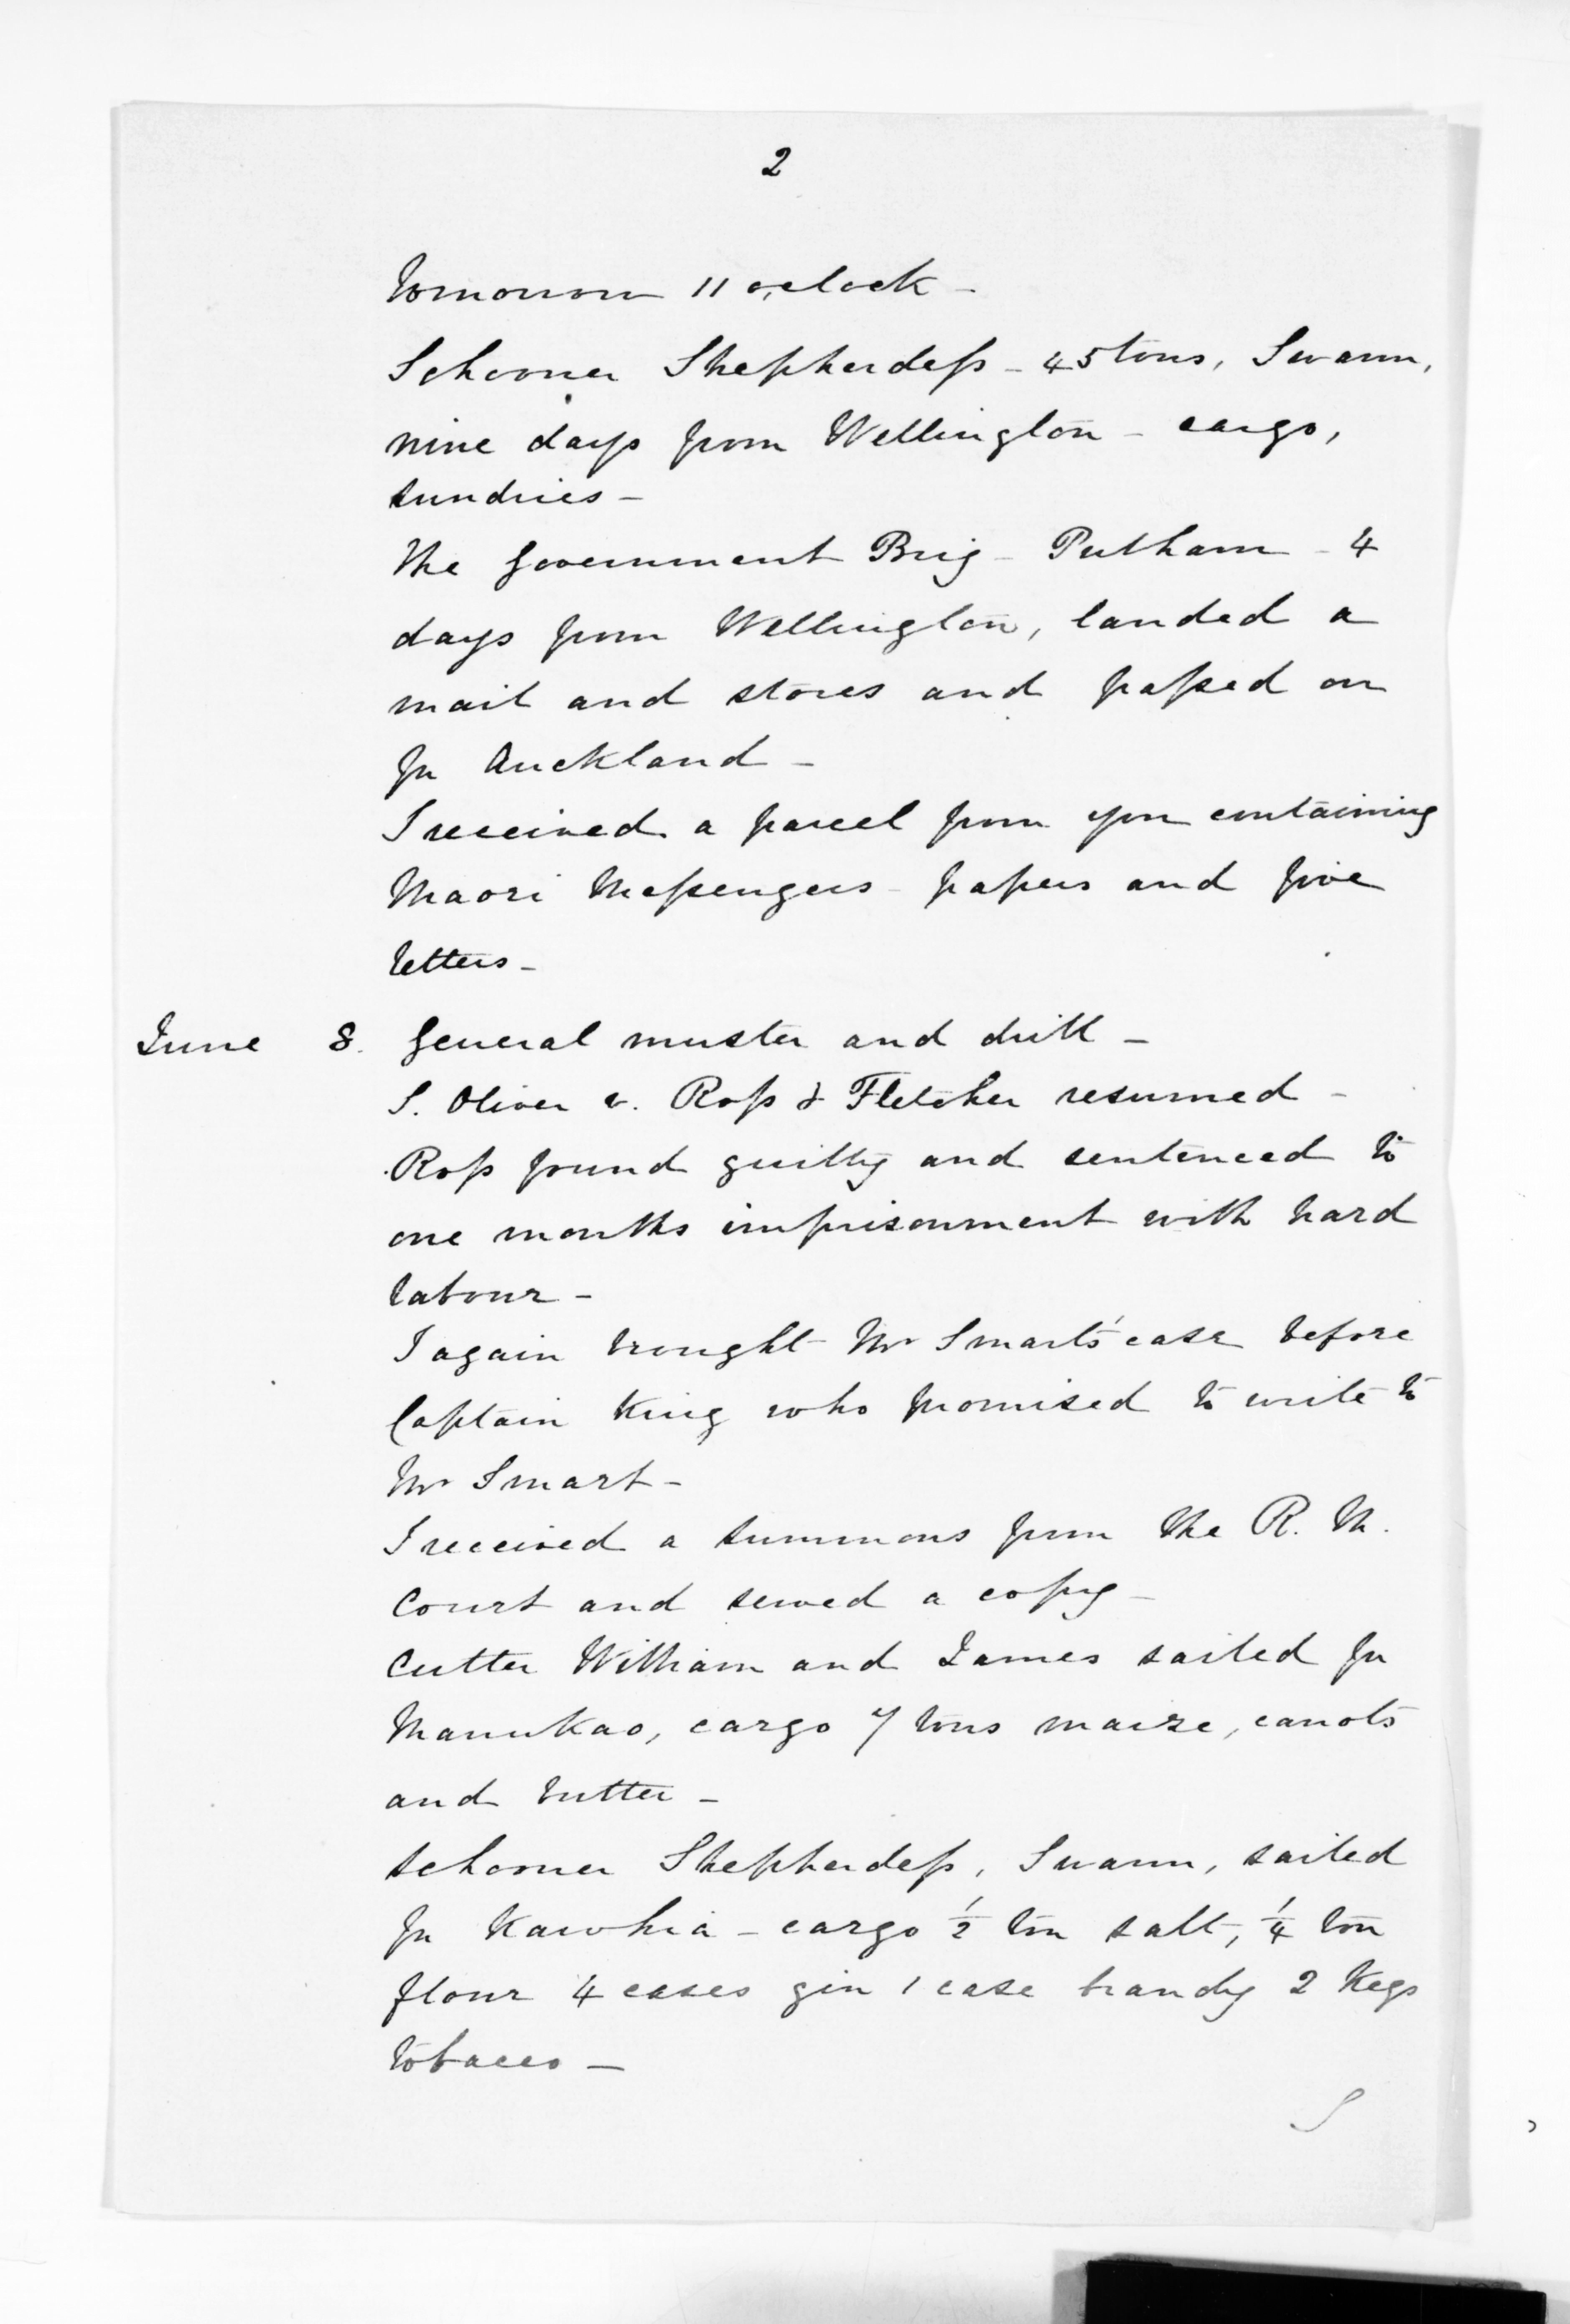 2
tomorrow 11 o'clock -
Schooner Shepherdess - 45 tons, Swann,
nine days from Wellington - cargo,
sundries -
The Government Brig - Pulham - 4
days from Wellington, landed a
mail and stores and passed on
for Auckland -
I received a parcel from you containing
Maori Messengers - papers and five
letters -
June 8. General muster and drill -
S. Oliver v. Ross & Fletcher resumed -
Ross found guilty and sentenced to
one months imprisonment with hard
labour -
I again brought Mr Smart's case before
Captain King who promised to write to
Mr Smart -
I received a summons from the R. M.
Court and served a copy -
Cutter William and James sailed for
Manukao, cargo 7 tons maize, carrots
and butter -
Schooner Shepherdess, Swann, sailed
for Kawhia - cargo ½ ton salt, ¼ ton
flour 4 cases gin 1 case brandy 2 Kegs
tobacco -
S